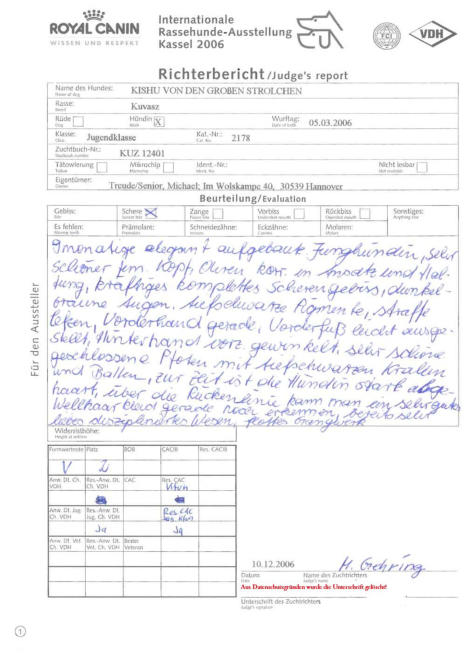 ROYAL CANIN
WISSEN UND RESPEKT
Internationale
Rassehunde-Ausstellung
Kassel 2006
FCI
VDH
Richterbericht /Judge's report
Name des Hundes: KISHU VON DEN GROßEN STROLCHEN
Name of dog
Rasse: Kuvasz
Breed
Rüde Hündin X Wurftag: 05.03.2006
Dog Bitch Date of birth
Klasse: Jugendklasse Kat.-Nr.: 2178
Class Cat. No.
Zuchtbuch-Nr.: KUZ 12401
Studbook number
Tätowierung Mikrochip Ident.-Nr.: Nicht lesbar
Tattoo Microchip Ident. No Not readable
Eigentümer: Treude/Senior, Michael; Im Wolskampe 40, 30539 Hannover
Owner
Beurteilung/Evaluation
Gebiss: Schere X Zange Vorbiss Rückbiss Sonstiges:
Es fehlen: Prämolaren: Schneidezähne: Eckzähne: Molaren:
9monatige elegant aufgebaut. Junghündin, sehr
schöner fem. Kopf, Ohren korr. in Ansatz und Hal-
tung, kräftiges komplettes Scherengebiss, dunkel-
braune Augen, tiefschwarze Pigmente, straffe
Lefzen, Vorderhand gerade, Vorderfuß leicht ausge-
stellt, Hinterhand vorz. gewinkelt, sehr schöne
geschlossene Pfoten mit tiefschwarzen Krallen
und Ballen, zur Zeit ist die Hündin stark abge-
haart, über die Rückenlinie kann man ein sehr gutes
Wellhaarkleid gerade noch erkennen, bereits sehr
liebes diszipliniertes Wesen, flottes Gangwerk
Für den Aussteller
Widerristhöhe:
Height at withers
Formwertnote Platz BOB CACIB Res. CACIB
V 2
Anw. Dt. Ch. VDH Res.-Anw. Dt. Ch. VDH CAC Res. CAC
Anw. Dt. Jug. Ch. VDH Res.-Anw. Dt. Jug. Ch. VDH Res CAC
Ja Ja
Anw. Dt. Vet. Ch. VDH Res.-Anw. Dt. Vet. Ch. VDH Bester Veteran
10.12.2006 H. Gehring
Datum Name des Zuchtrichters
Date Judge's name
Aus Datenschutzgründen wurde die Unterschrift gelöscht!
Unterschrift des Zuchtrichters
Judge's signature
1